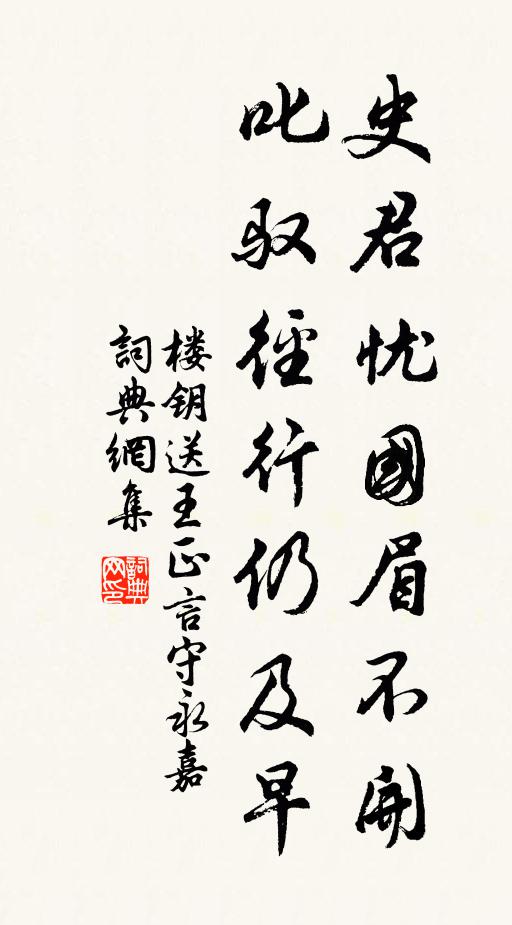 史君忧國眉不開
叱驭徑行仍及早
楼钥送王正言守永嘉
詞典網集
詞典网印